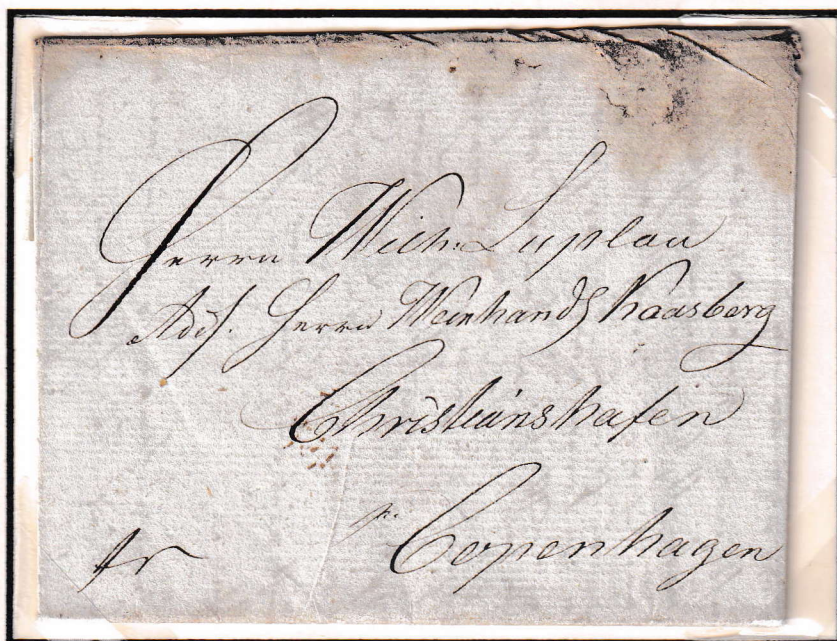 Herrn Wilh. Luplau
Adr. Herrn Weinhandl Kaasberg
Christianshafen
in Copenhagen
fr